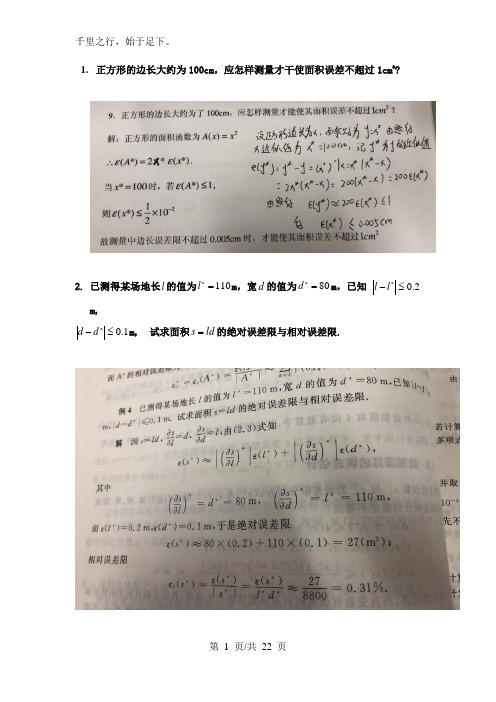 千里之行，始于足下。
1. 正方形的边长大约为100cm，应怎样测量才干使面积误差不超过1cm²?
9. 正方形的边长大约为了100cm，应怎样测量才能使其面积误差不超过1cm²？
解：正方形的面积函数为A(x) = x²
∴ε(A*) = 2x* ε(x*).
当x*=100时，若ε(A*)≤1,
则ε(x*)≤1/2×10⁻²
故测量中边长误差限不超过0.005cm时，才能使其面积误差不超过1cm²
设正方形边长为x，面积为y=x²
x*=100cm，记y*为y的近似值
=2x*(x*-x)=200(x*-x)=200e(x*)
ε(y*)≈200ε(x*)≤1
ε(x*)≤0.005cm
2. 已测得某场地长l的值为l*=110m，宽d的值为d*=80m，已知 |l-l*|≤0.2
m，
|d-d*|≤0.1m， 试求面积s=ld的绝对误差限与相对误差限.
例4 已测得某场地长l的值为l*=110 m,宽d的值为d*=80 m,已知
m,|d-d*|≤0.1 m,试求面积s=ld的绝对误差限与相对误差限.
解 因s=ld, ∂s/∂l=d, ∂s/∂d=l,由(2.3)式知
ε(s*)≈|(∂s/∂l)*|ε(l*)+|(∂s/∂d)*|ε(d*),
若计算
多项式
其中
(∂s/∂l)*=d*=80 m, (∂s/∂d)*=l*=110 m,
并取
而ε(l*)=0.2 m,ε(d*)=0.1 m,于是绝对误差限
先不
ε(s*)≈80×(0.2)+110×(0.1)=27(m²);
相对误差限
εr(s*)=ε(s*)/|s*|=ε(s*)/l*d*≈27/8800=0.31%.
第 1 页/共 22 页